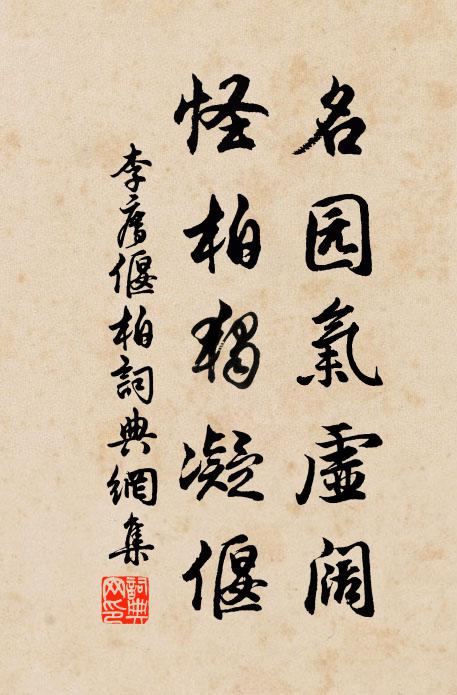 名园氣虛阔
怪柏獨凝偃
李廌偃柏詞典網集
詞典网印